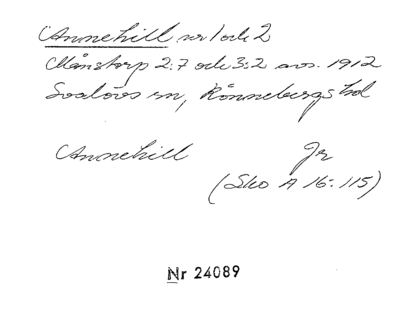 "Annehill nr 1 och 2
Månstorp 2:7 och 3:2 avs. 1912
Svalövs sn, Rönnebergs hd
Annehill Jr
(Sko A 16: 115)
Nr 24089